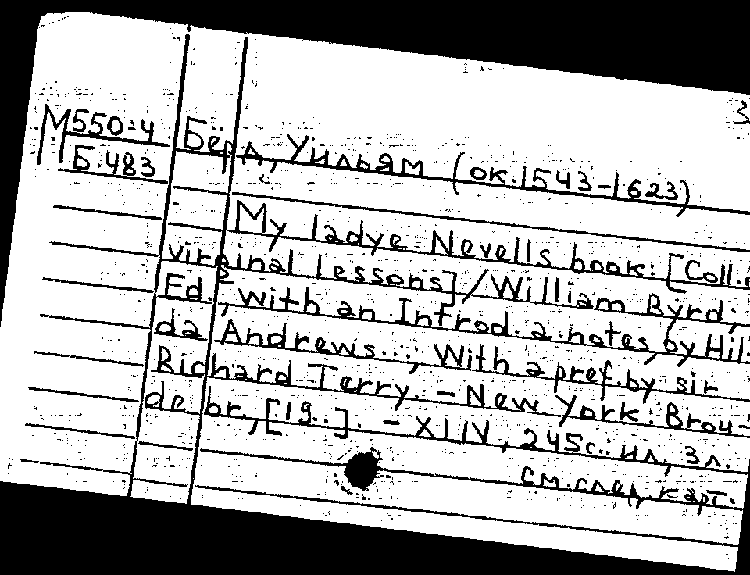 3
М550-4
Б.483
Бёрд, Уильям (ок.1543-1623)
My ladye Nevells book: [Coll.
virginal lessons] / William Byrd;
Ed., with an Introd. a. notes, by Hil-
da Andrews...; With a pref. by sir
Richard Terry. - New York: Brou-
de br., [19..]. - XLIV, 245с.: ил, 3л.
см. след. карт.